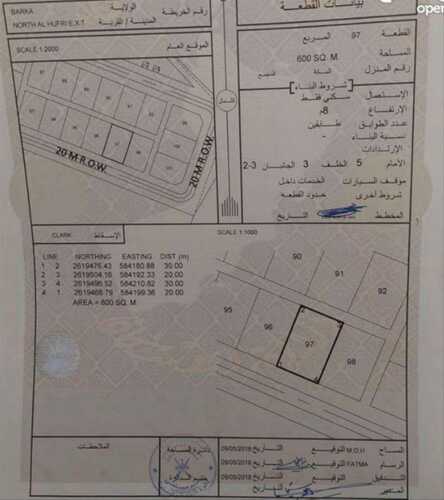 open
بيانات القطعة
BARKA
الولاية
رقم الخريطة
NORTH AL HUFRI E.X.T
المدينة / القرية
SCALE 1:2000
الموقع العام
القطعة
97
المربع
المساحة
600 SQ. M.
رقم المنزل
شروط البناء
الإستعمال
سكني فقط
الإرتفاع
8م
عدد الطوابق
طابقين
نسبة البناء
-
الإرتدادات
الأمام 5 الخلف 3 الجانبان 3-2
موقف السيارات
الخدمات داخل
شروط أخرى
حدود القطعه
المخطط
التاريخ
20 M R.O.W.
20 M R.O.W.
الشمال
CLARK
الإسقاط
SCALE 1:1000
LINE NORTHING EASTING DIST (m)
1 2 2619476.43 584180.88 30.00
2 3 2619504.16 584192.33 20.00
3 4 2619496.52 584210.82 30.00
4 1 2619468.79 584199.36 20.00
AREA = 600 SQ. M.
90
91
92
95
96
97
98
الملاحظات
دائرة المساحة
المساح
M.O.H
التوقيع
التاريخ
09/05/2018
الرسام
FATMA
التوقيع
التاريخ
09/05/2018
التدقيق
التوقيع
التاريخ
المدير